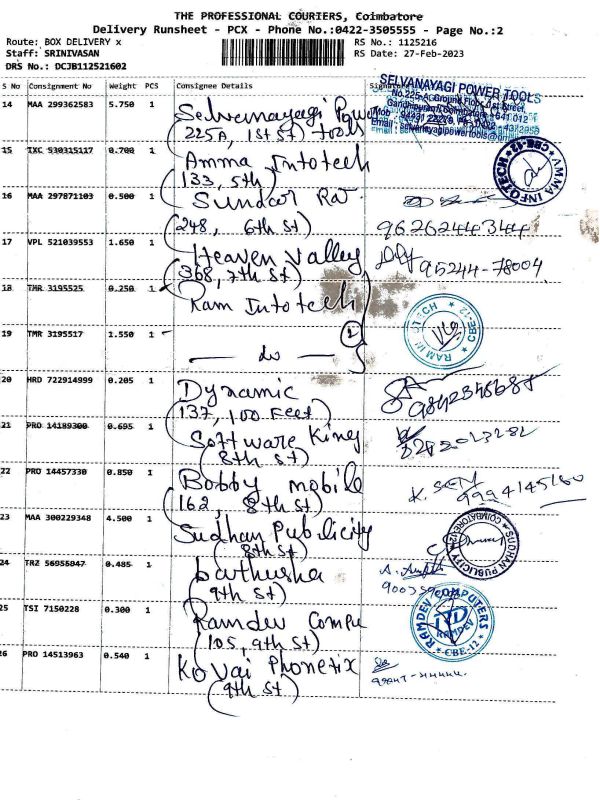 THE PROFESSIONAL COURIERS, Coimbatore
Delivery Runsheet - PCX - Phone No.:0422-3505555 - Page No.:2
Route: BOX DELIVERY x
RS No.: 1125216
Staff: SRINIVASAN
RS Date: 27-Feb-2023
DRS No.: DCJB112521602
S No Consignment No Weight PCS Consignee Details
14 MAA 299362583 5.750 1 Selvanayagi Powe
(225A, 1st St) Tools
SELVANAYAGI POWER TOOLS
No.225-A, Ground Floor, 1st Street,
Gandhipuram, Coimbatore - 641 012
15 TXC 530315117 0.700 1 Amma Infotech
(133, 5th)
AMMA INFOTECH
CBE-12
16 MAA 297871103 0.500 1 Sundar Raj
(248, 6th St)
9626244344
17 VPL 521039553 1.650 1 Heaven Valley
(368, 7th St)
95244-78004
18 TMR 3195525 0.250 1 Ram Infotech
RAM INFOTECH
CBE-12
19 TMR 3195517 1.550 1
— do —
2
20 HRD 722914999 0.205 1 Dynamic
(137, 100 Feet)
21 PRO 14189300 0.695 1 Software King
(8th St)
22 PRO 14457330 0.850 1 Bobby mobile
(162, 8th St)
9994145160
23 MAA 300229348 4.500 1 Sudhan Publicity
(8th St)
SUDHAN PUBLICITY
24 TRZ 56955047 0.485 1
(9th St)
25 TSI 7150228 0.300 1 Ramdev Compu
(105, 9th St)
RAMDEV COMPUTERS
RAMDEV
CBE-12
26 PRO 14513963 0.540 1 Kovai Phonetix
(9th St)